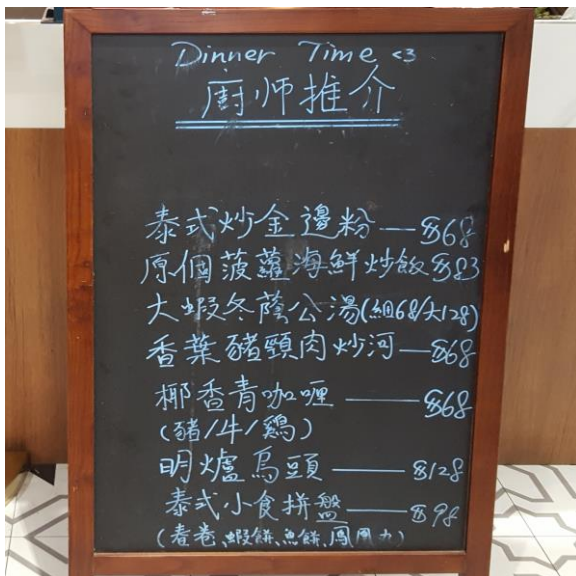 Dinner Time <3
厨师推介
泰式炒金邊粉 — $68
原個菠蘿海鮮炒飯 $83
大蝦冬蔭公湯(細68/大128)
香葉豬頸肉炒河 — $68
椰香青咖喱 — $68
(豬/牛/鷄)
明爐烏頭 — $128
泰式小食拼盤 — $98
(春卷、蝦餅、魚餅、鳳凰力)